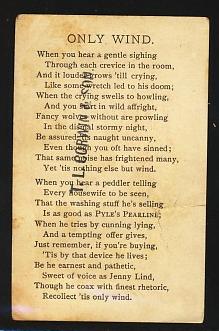 ONLY WIND.
When you hear a gentle sighing
Through each crevice in the room,
And it louder grows 'till crying,
Like some wretch led to his doom;
When the crying swells to howling,
And you start in wild affright,
Fancy wolves without are prowling
In the dismal stormy night,
Be assured 'tis naught uncanny,
Even though you oft have sinned;
That same noise has frightened many,
Yet 'tis nothing else but wind.
When you hear a peddler telling
Every housewife to be seen,
That the washing stuff he's selling
Is as good as PYLE'S PEARLINE;
When he tries by cunning lying,
And a tempting offer gives,
Just remember, if you're buying,
'Tis by that device he lives;
Be he earnest and pathetic,
Sweet of voice as Jenny Lind,
Though he coax with finest rhetoric,
Recollect 'tis only wind.